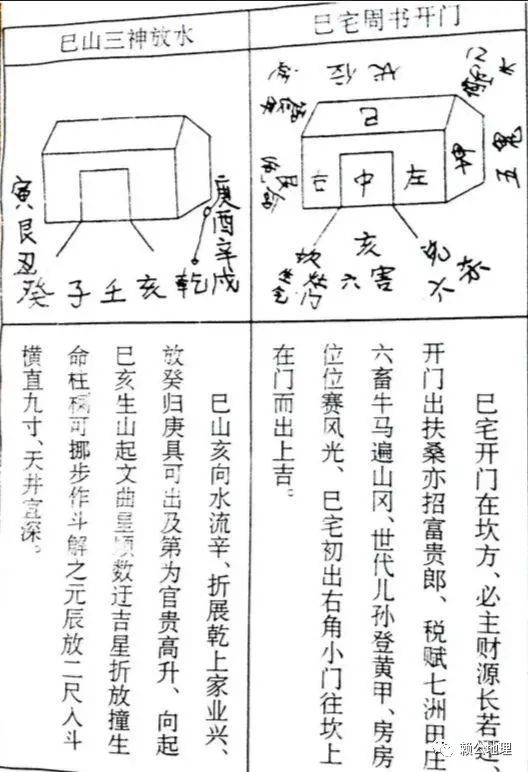 巳宅周书开门
巳山三神放水
伏位
巳
右
中
左
五鬼
坎
亥
六害
寅
艮
丑
癸子壬亥乾戌
辛
酉
庚
巳宅开门在坎方、必主财源长若
开门出扶桑亦招富贵郎、税赋七洲田庄
六畜牛马遍山冈、世代儿孙登黄甲、房房
位位赛风光、巳宅初出右角小门往坎上
在门而出上吉。
巳山亥向水流辛、折展乾上家业兴、
放癸归庚具可出及第为官贵高升、向起
巳亥生山起文曲星顺数迂吉星折放撞生
命柱 可挪步作斗解之元辰放二尺入斗
横直九寸、天井宜深。
赖公地理